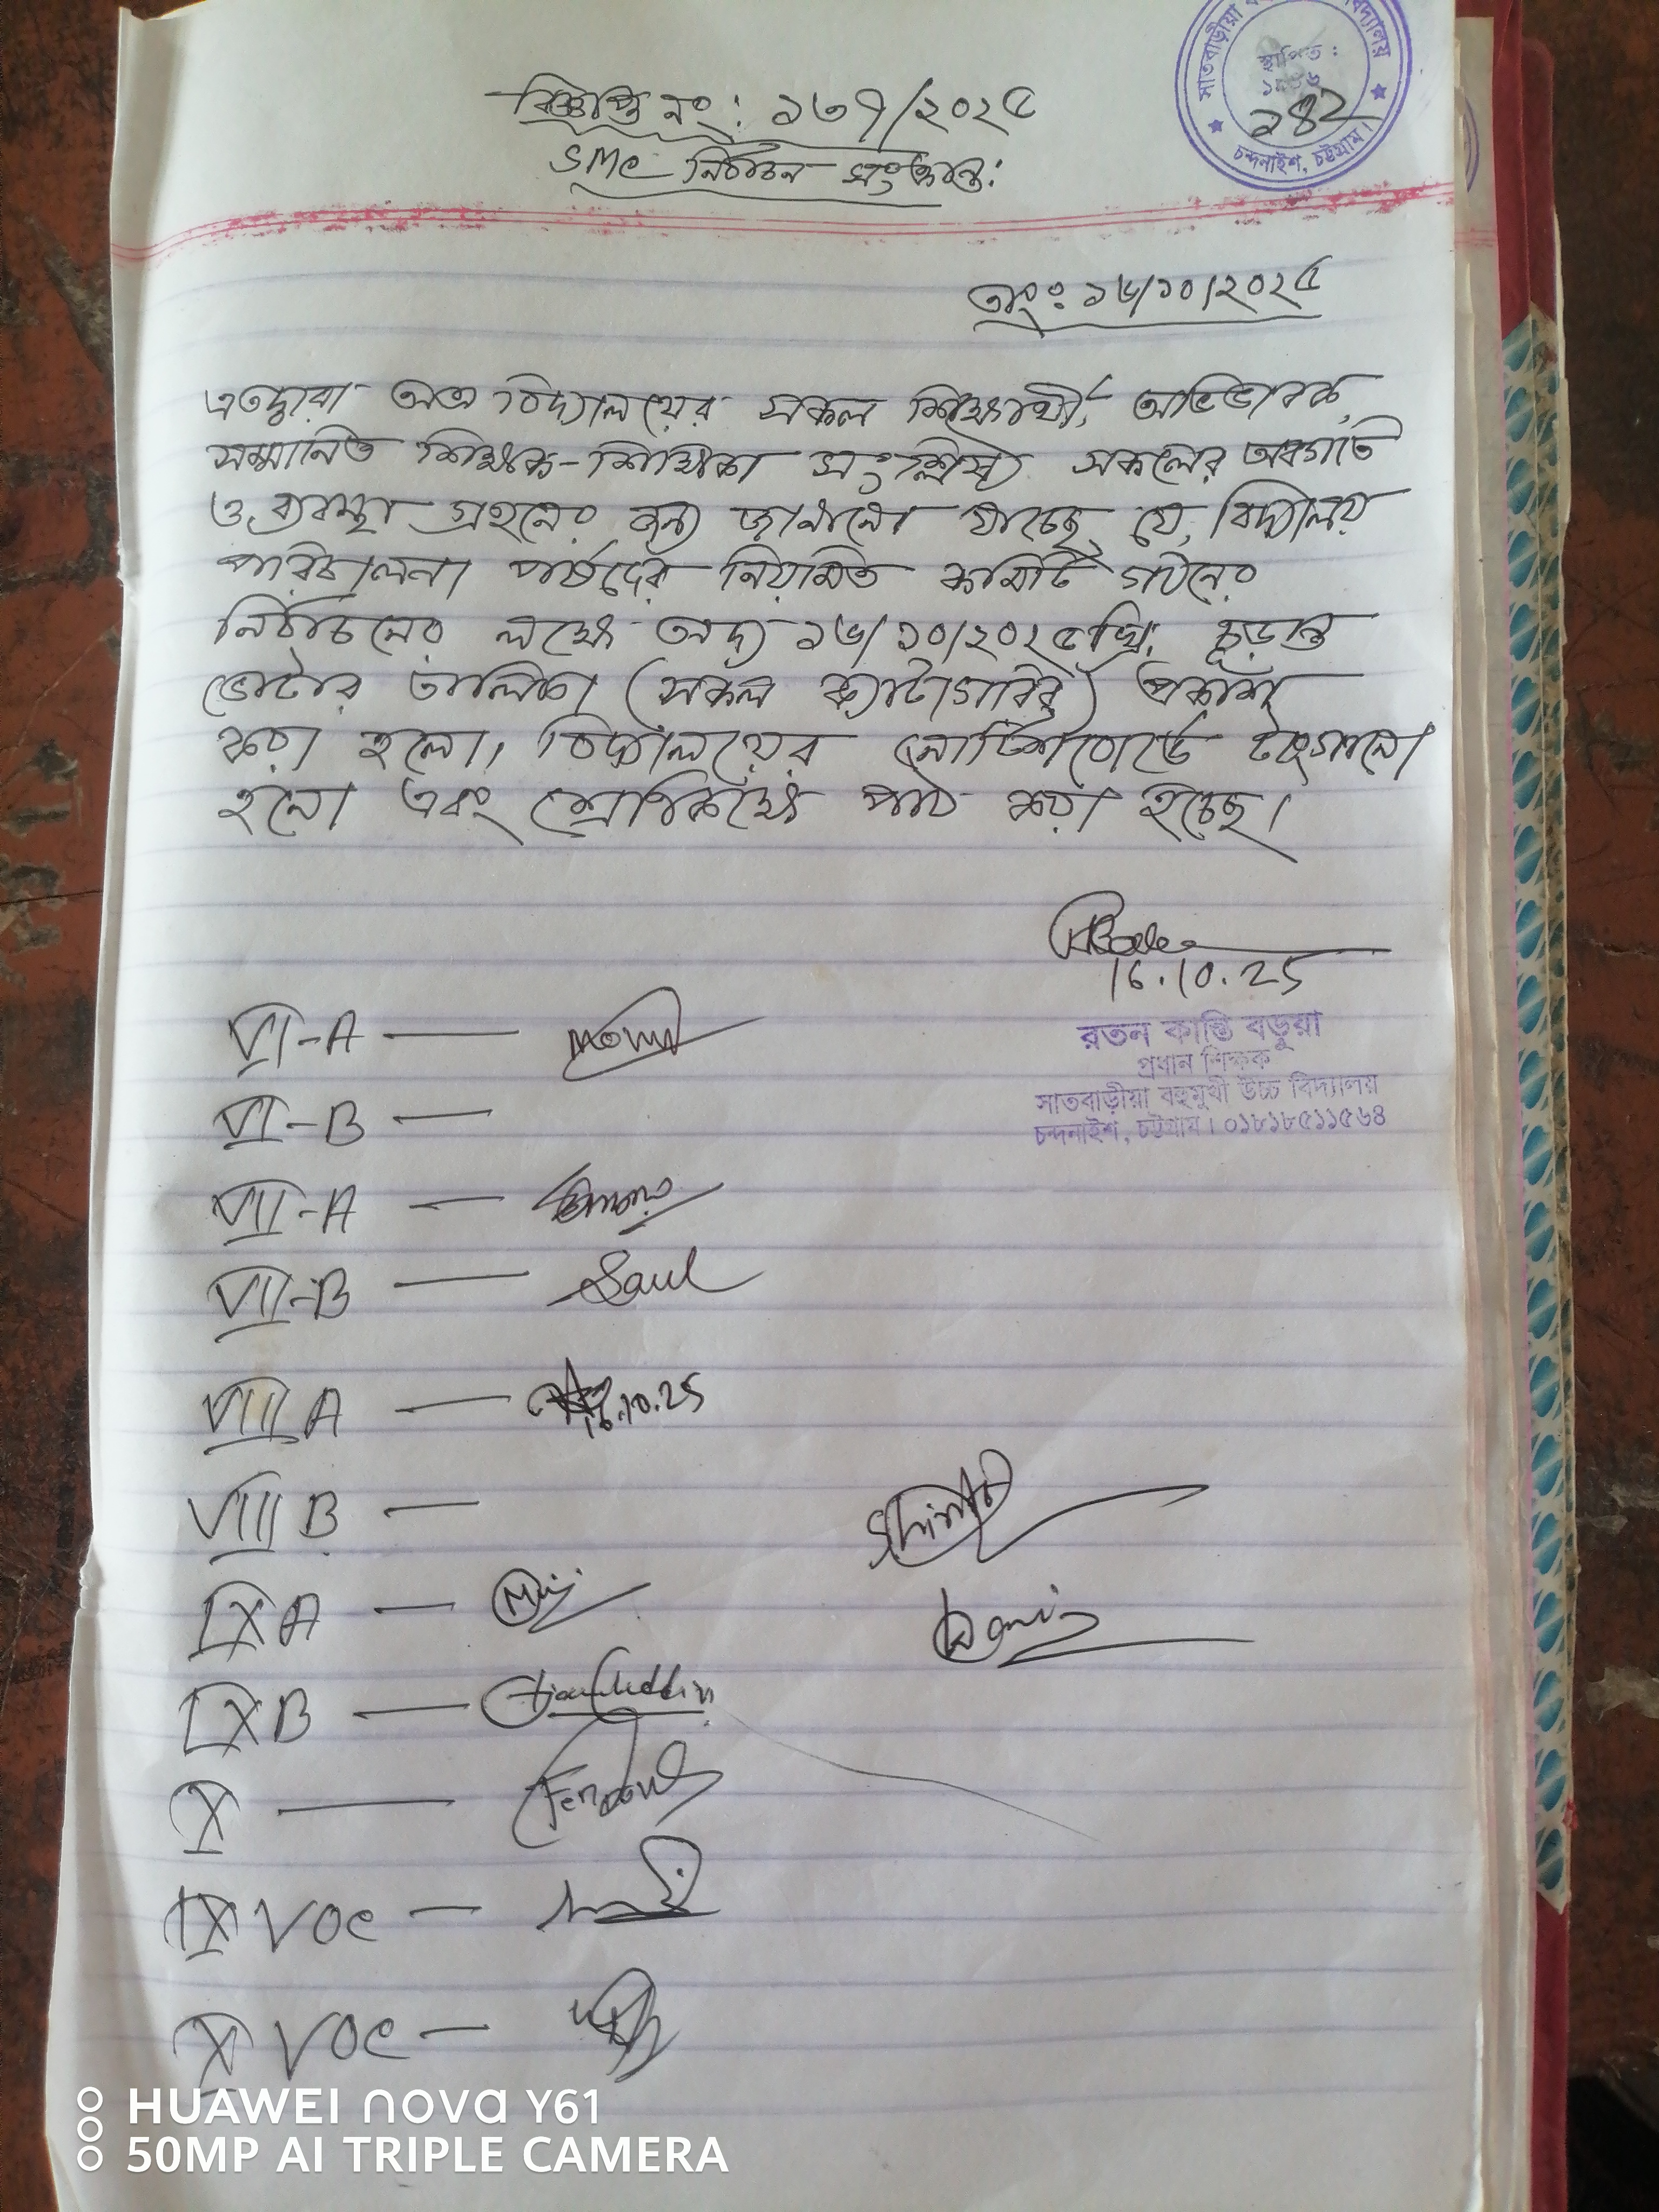 সাতবাড়ীয়া
বিদ্যালয়
স্থাপিত :
১৪২
চন্দনাইশ, চট্টগ্রাম।
বিজ্ঞপ্তি নং: ১৩৭/২০২৫
SMC নির্বাচন সংক্রান্ত:
তাং: ১৬/১০/২০২৫
এতদ্বারা অত্র বিদ্যালয়ের সকল শিক্ষার্থী, অভিভাবক,
সম্মানিত শিক্ষক-শিক্ষিকা সংশ্লিষ্ট সকলের অবগতি
ও ব্যবস্থা গ্রহনের জন্য জানানো যাচ্ছে যে, বিদ্যালয়
পরিচালনা পর্ষদের নিয়মিত কমিটি গঠনের
নির্বাচনের লক্ষে অদ্য ১৬/১০/২০২৫খ্রি. চূড়ান্ত
ভোটার তালিকা (সকল ক্যাটাগরির) প্রকাশ
করা হলো। বিদ্যালয়ের নোটিশবোর্ডে টাংগানো
হলো এবং শ্রেণিকক্ষে পাঠ করা হচ্ছে।
16.10.25
রতন কান্তি বড়ুয়া
প্রধান শিক্ষক
সাতবাড়ীয়া বহুমুখী উচ্চ বিদ্যালয়
চন্দনাইশ, চট্টগ্রাম। ০১৮১৮৫১১৫৬৪
VI-A —
VI-B —
VII-A —
VII-B —
VIII A — 16.10.25
VIII B —
IX A —
IX B —
X — Ferdous
IX VOC —
X VOC —
HUAWEI nova Y61
50MP AI TRIPLE CAMERA